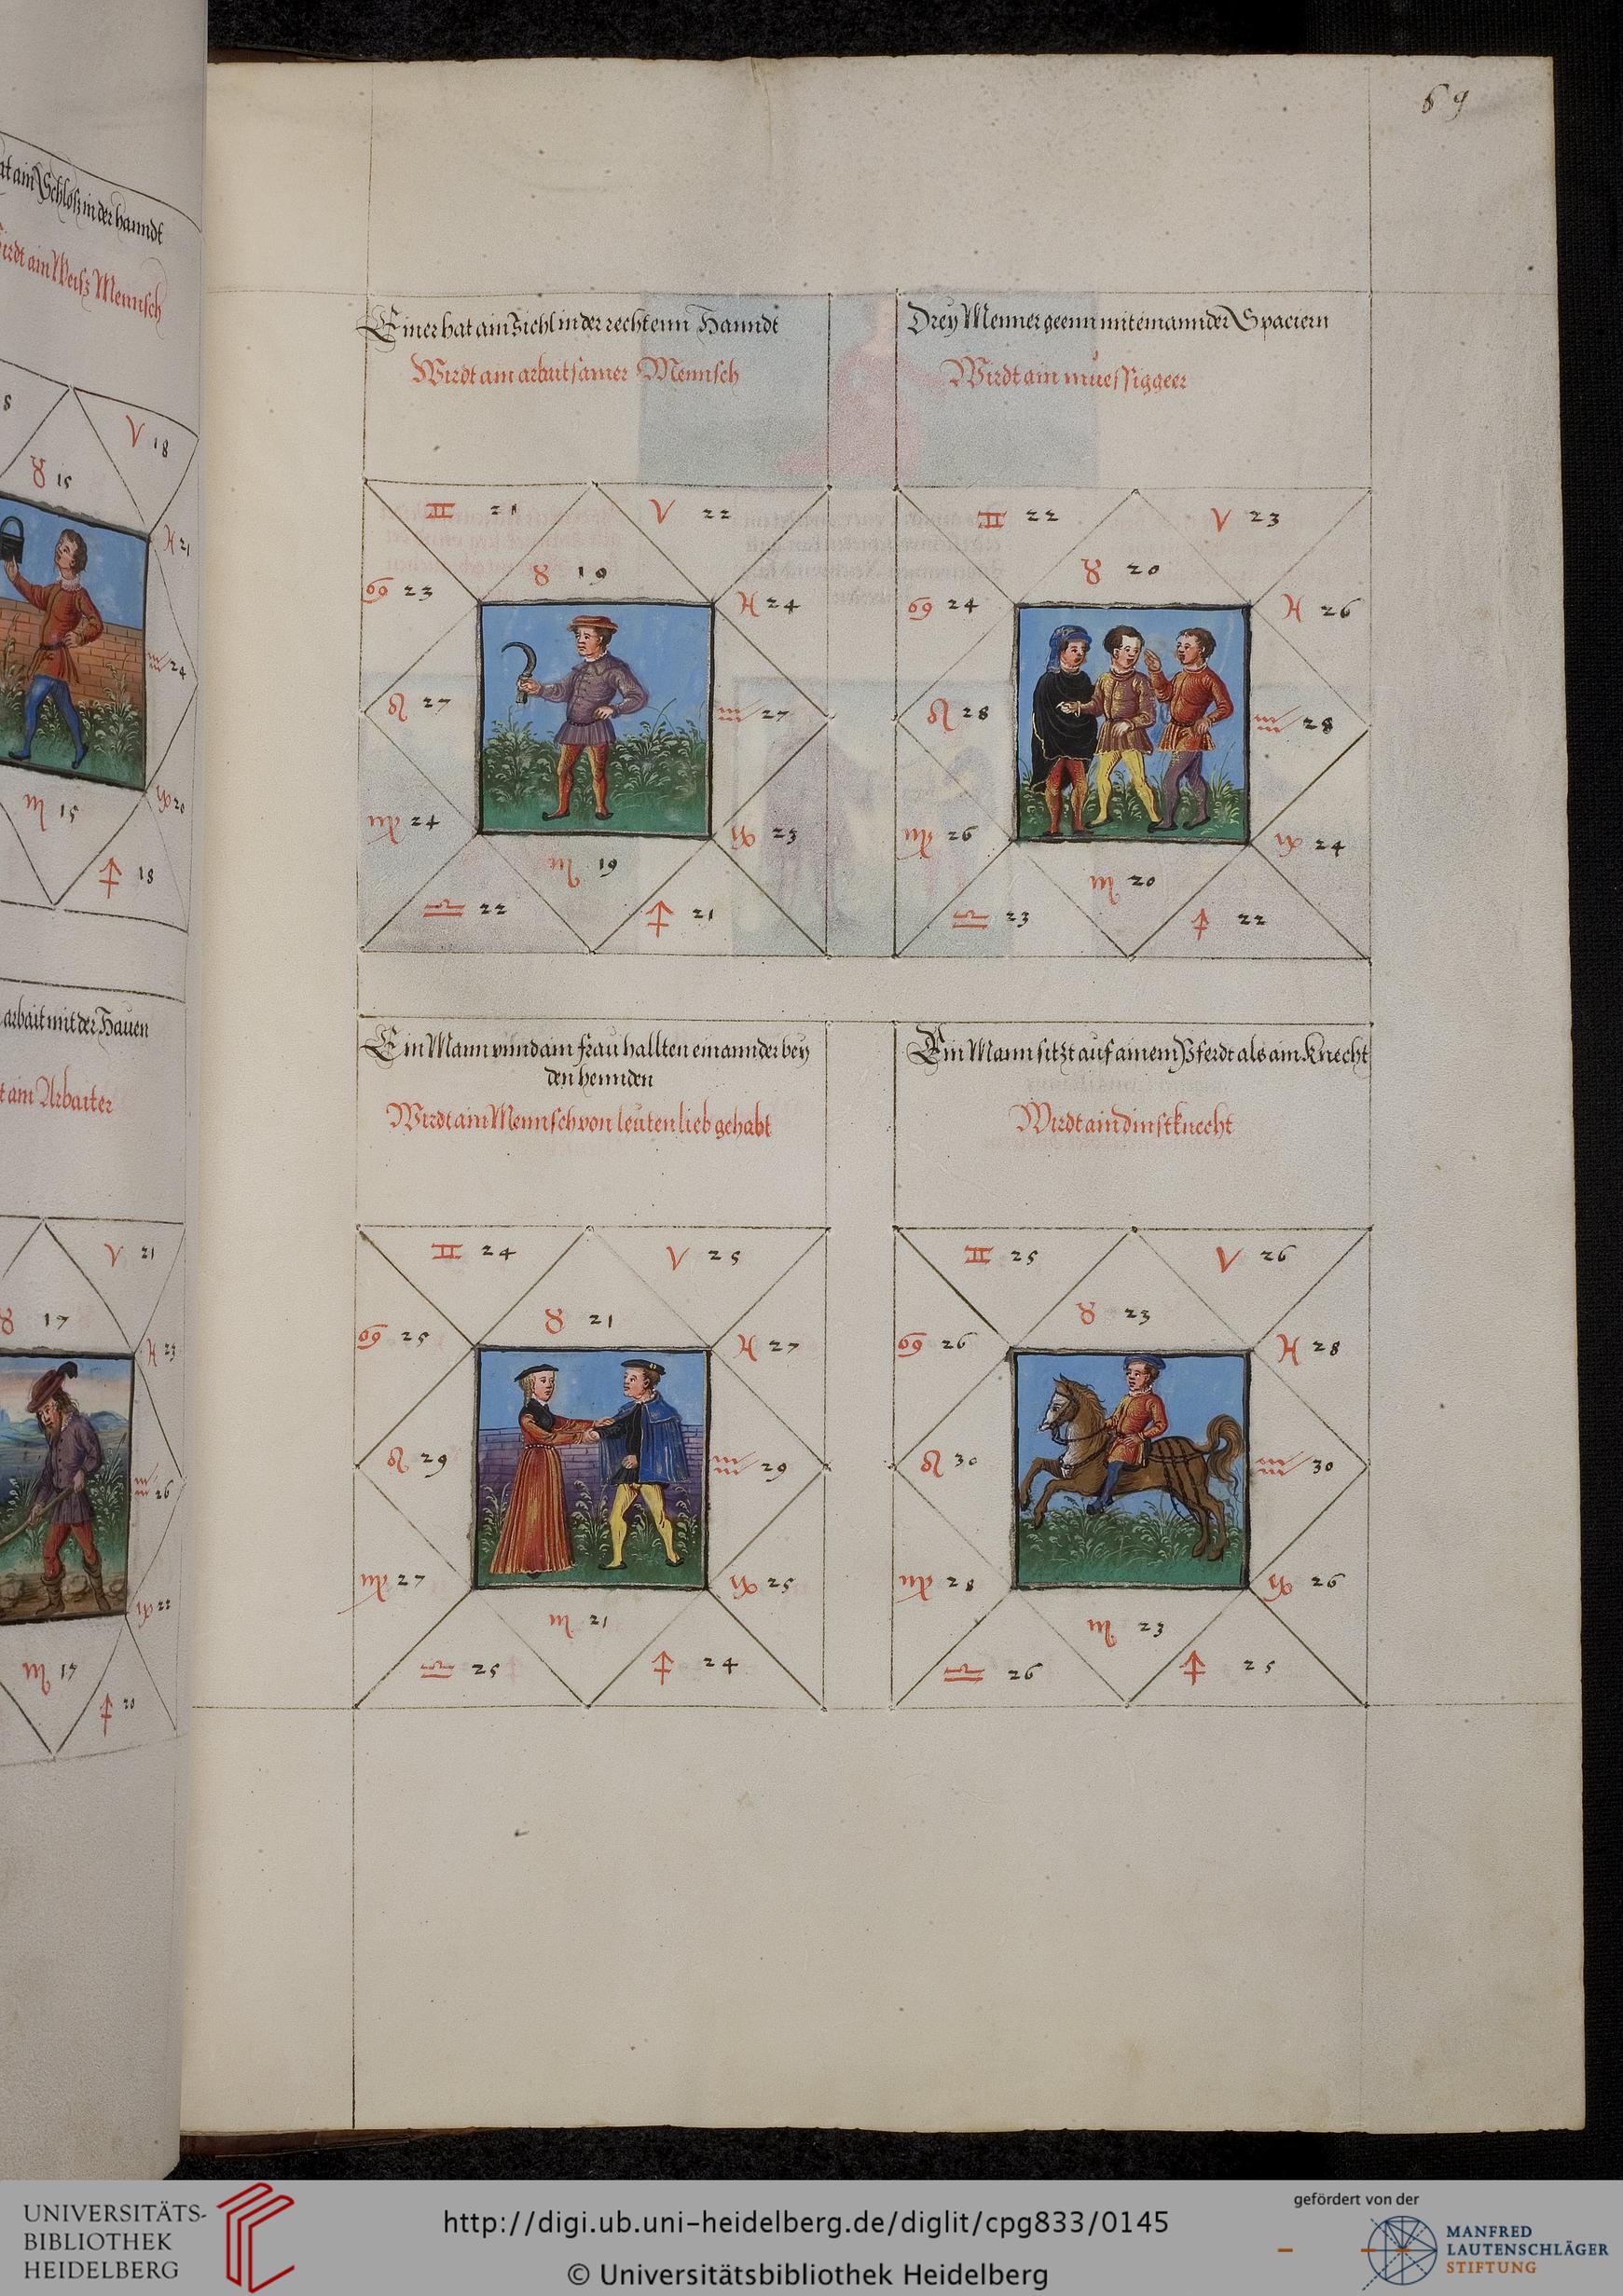 69
at ain Schloß in der hanndt
irdt ain Weiß Mennsch
8
♈ 18
♉ 15
♓ 21
♒ 24
♑ 20
♏ 15
♐ 18
arbait mit der Hauen
t ain Arbaiter
♈ 21
♉ 17
♓ 23
♒ 26
♑ 22
♏ 17
♐ 20
Einer hat ain Siehl in der rechtenn Hanndt
Wirdt ain arbaitsamer Mennsch
♊ 21
♈ 22
♉ 19
♋ 23
♓ 24
♌ 27
♒ 27
♍ 24
♑ 23
♏ 19
♎ 22
♐ 21
Drey Menner geenn mit einannder Spaciern
Wirdt ain muessiggeer
♊ 22
♈ 23
♉ 20
♋ 24
♓ 26
♌ 28
♒ 28
♍ 26
♑ 24
♏ 20
♎ 23
♐ 22
Ein Mann vnnd ain frau hallten einannder bey
den hennden
Wirdt ain Mennsch von leuten lieb gehabt
♊ 24
♈ 25
♉ 21
♋ 25
♓ 27
♌ 29
♒ 29
♍ 27
♑ 25
♏ 21
♎ 25
♐ 24
Ein Mann sitzt auf ainem Pferdt als ain Knecht
Wirdt ain dinstknecht
♊ 25
♈ 26
♉ 23
♋ 26
♓ 28
♌ 30
♒ 30
♍ 28
♑ 26
♏ 23
♎ 26
♐ 25
UNIVERSITÄTS-
BIBLIOTHEK
HEIDELBERG
http://digi.ub.uni-heidelberg.de/diglit/cpg833/0145
© Universitätsbibliothek Heidelberg
gefördert von der
MANFRED
LAUTENSCHLÄGER
STIFTUNG